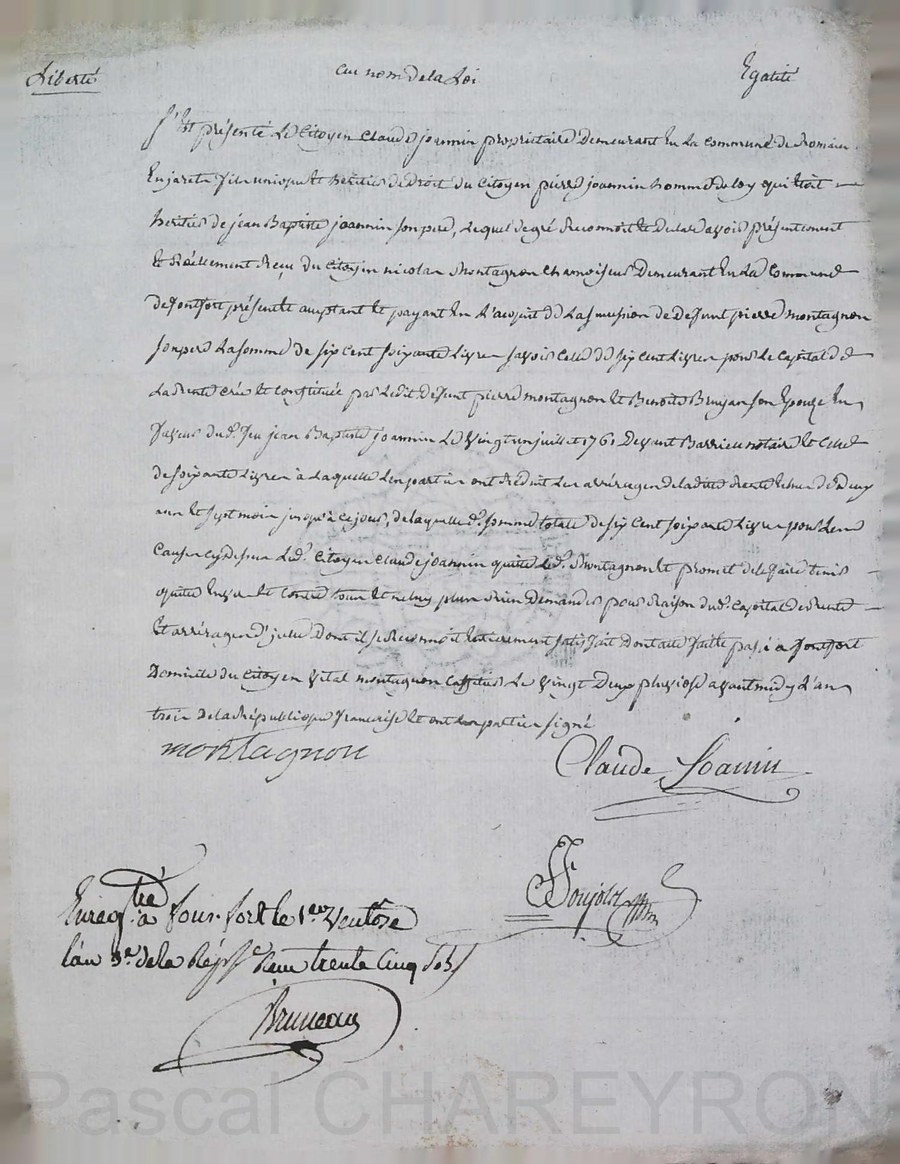 Liberté au nom de la Loi Egalité
S'Est présenté Le Citoyen Claude joannin propriétaire Demeurant En La Commune de Romain
En jaretz fils unique Et héritier de Droit du Citoyen pierre joannin homme de loy qui Etoit
héritier de jean Baptiste joannin son pere, Lequel de gré Reconnoit Et Declare avoir présentement
Et Réellement Reçu du Citoyen nicolas Montagnon Chamoiseur Demeurant En La Commune
de fontfort présent Et acceptant Et payant En L'acquit de La succession de Defunt pierre montagnon
son pere La somme de six Cent soixante Livres savoir Celle de six Cent Livres pour Le Capital de
La Rente créé Et Constituée par Ledit Defunt pierre montagnon Et Benoite Brujas son Epouze En
faveur du d. feu jean Baptiste joannin Le Vingt un juillet 1761 Devant Barrieu notaire Et Celle
de soixante Livres à Laquelle Les parties ont Réduit Les arrérages de Ladite Rente Echus de Deux
ans Et sept mois jusqu'à Ce jour, de laquelle d. somme totale de six Cent soixante Livres pour Les
Causes cy dessus Led. Citoyen Claude joannin quitte Led. Montagnon Et promet de Le faire tenir
quitte Envers Et Contre tous Et ne luy plus Rien Demander pour Raison du d. Capital de Rente
Et arrérages d'icelle Dont il se Reconnoit Entierement satisfait Dont acte faitte passé à fontfort
Domicile du Citoyen Vital montagnon Caffetier Le Vingt Deux pluviose avant midy L'an
trois de La République française Et ont Les parties signé
montagnon Claude Joanin
Enregtré à fonfort le 1er Ventôse
l'an 3e de la Répe Reçu trente Cinq sols
Bruneau